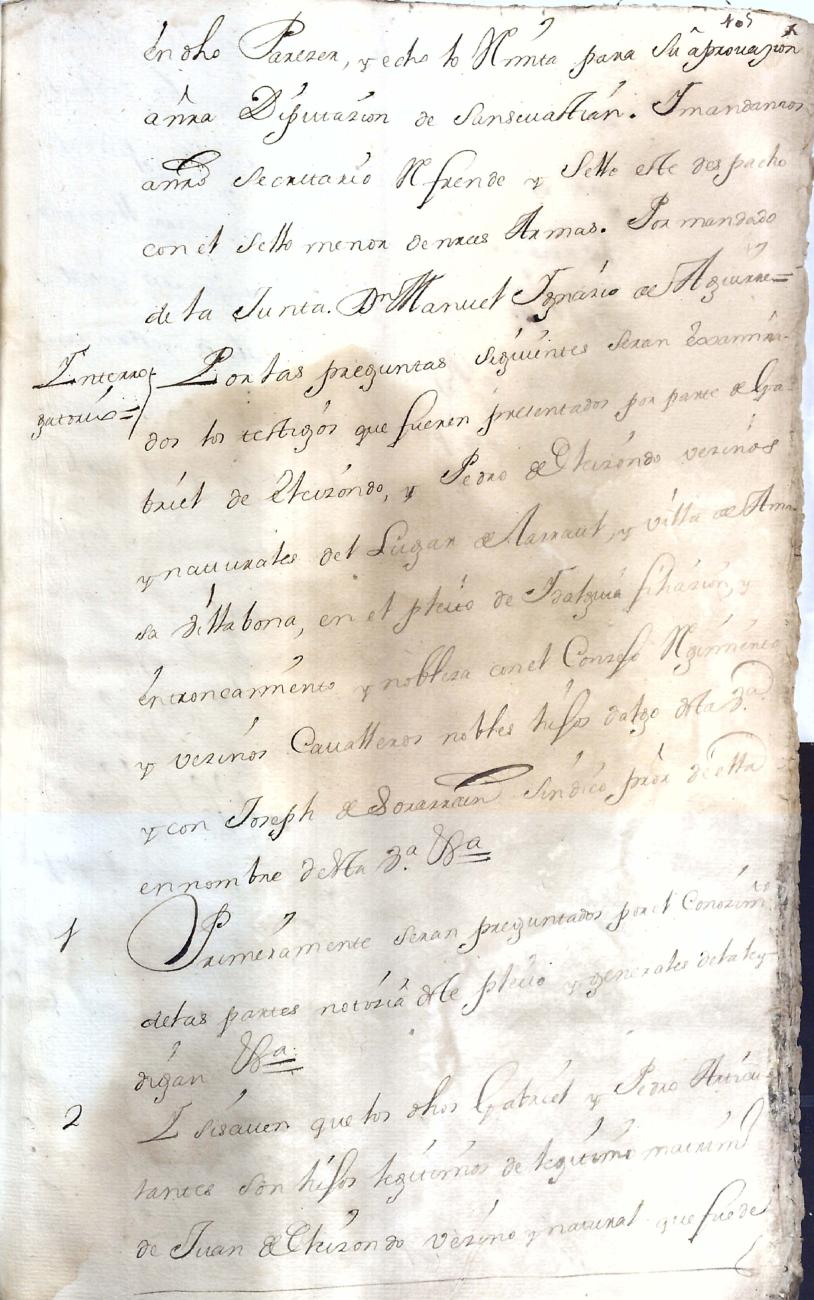 105
en dho Parezer, y echo lo Rmita para su aprouazion
a nra Diputazion de Sanseuastian. I mandamos
a nro secretario Rfrende y selle este despacho
con el sello menor de nras Armas. Por mandado
de la Junta. Dn Manuel Ignazio de Aguirre=
Interro-
gatorio=
Por las preguntas siguientes seran examina-
dos los testigos que fueren presentados por parte de Ga-
briel de Elizondo, y Pedro de Elizondo vezinos
y naturales del Lugar de Arraut, y villa de Ama-
sa Villabona, en el pleito de Idalguia filiazion, y
entroncamiento y nobleza con el Conzejo Rgimiento
y vezinos Caualleros nobles hijos dalgo de la
y con Joseph de Sorarrain sindico pror de ella
en nombre de
1 Primeramente seran preguntados por el Conozimto
de las partes notizia del pleito y generales de la ley
digan &a
2 I si sauen que los dhos Gabriel y Pedro Articu-
lantes son hijos legitimos de legitimo matrimo
de Juan de Elizondo vezino y natural que fue de